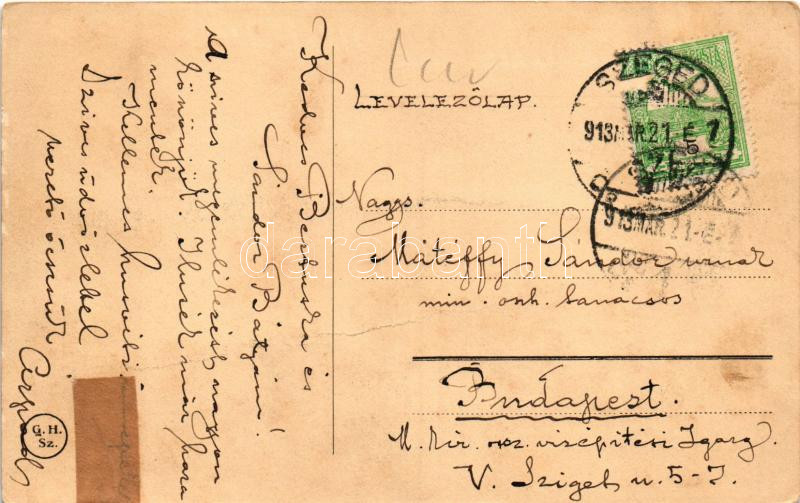 Kedves Bertuska és
Sándor Bátyám!
A szives megemlékezést nagyon
köszönjük. Ilusék már haza
mentek.
Kellemes husvéti
Szives üdvözlettel
szerető öcsétek
Árpád
G.H.
Sz.
LEVELEZŐLAP.
SZEGED
913 MÁR. 21. E 7
913 MÁR. 21.-E-
Nagys.
Mátéffy Sándor urnak
min. oszt. tanácsos
Budapest.
M. kir. orsz. vizépítési Igazg.
V. Sziget u. 5-7.
darabanth